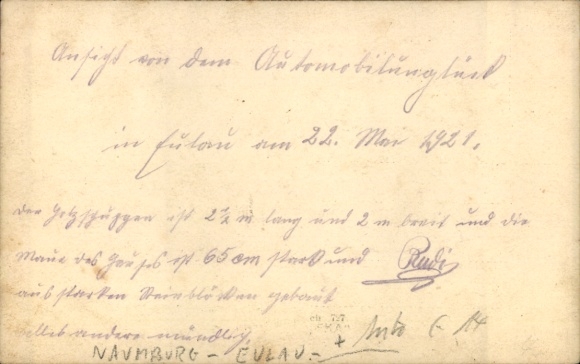 Ansicht von dem Automobilunglück
in Eulau am 22. Mai 1921.
Der Holzschuppen ist 2½ m lang und 2 m breit und die
Mauer des Hauses ist 65 cm stark und Rudi
aus starken Steinblöcken gebaut
alles andere mündlich
NAUMBURG - EULAU -